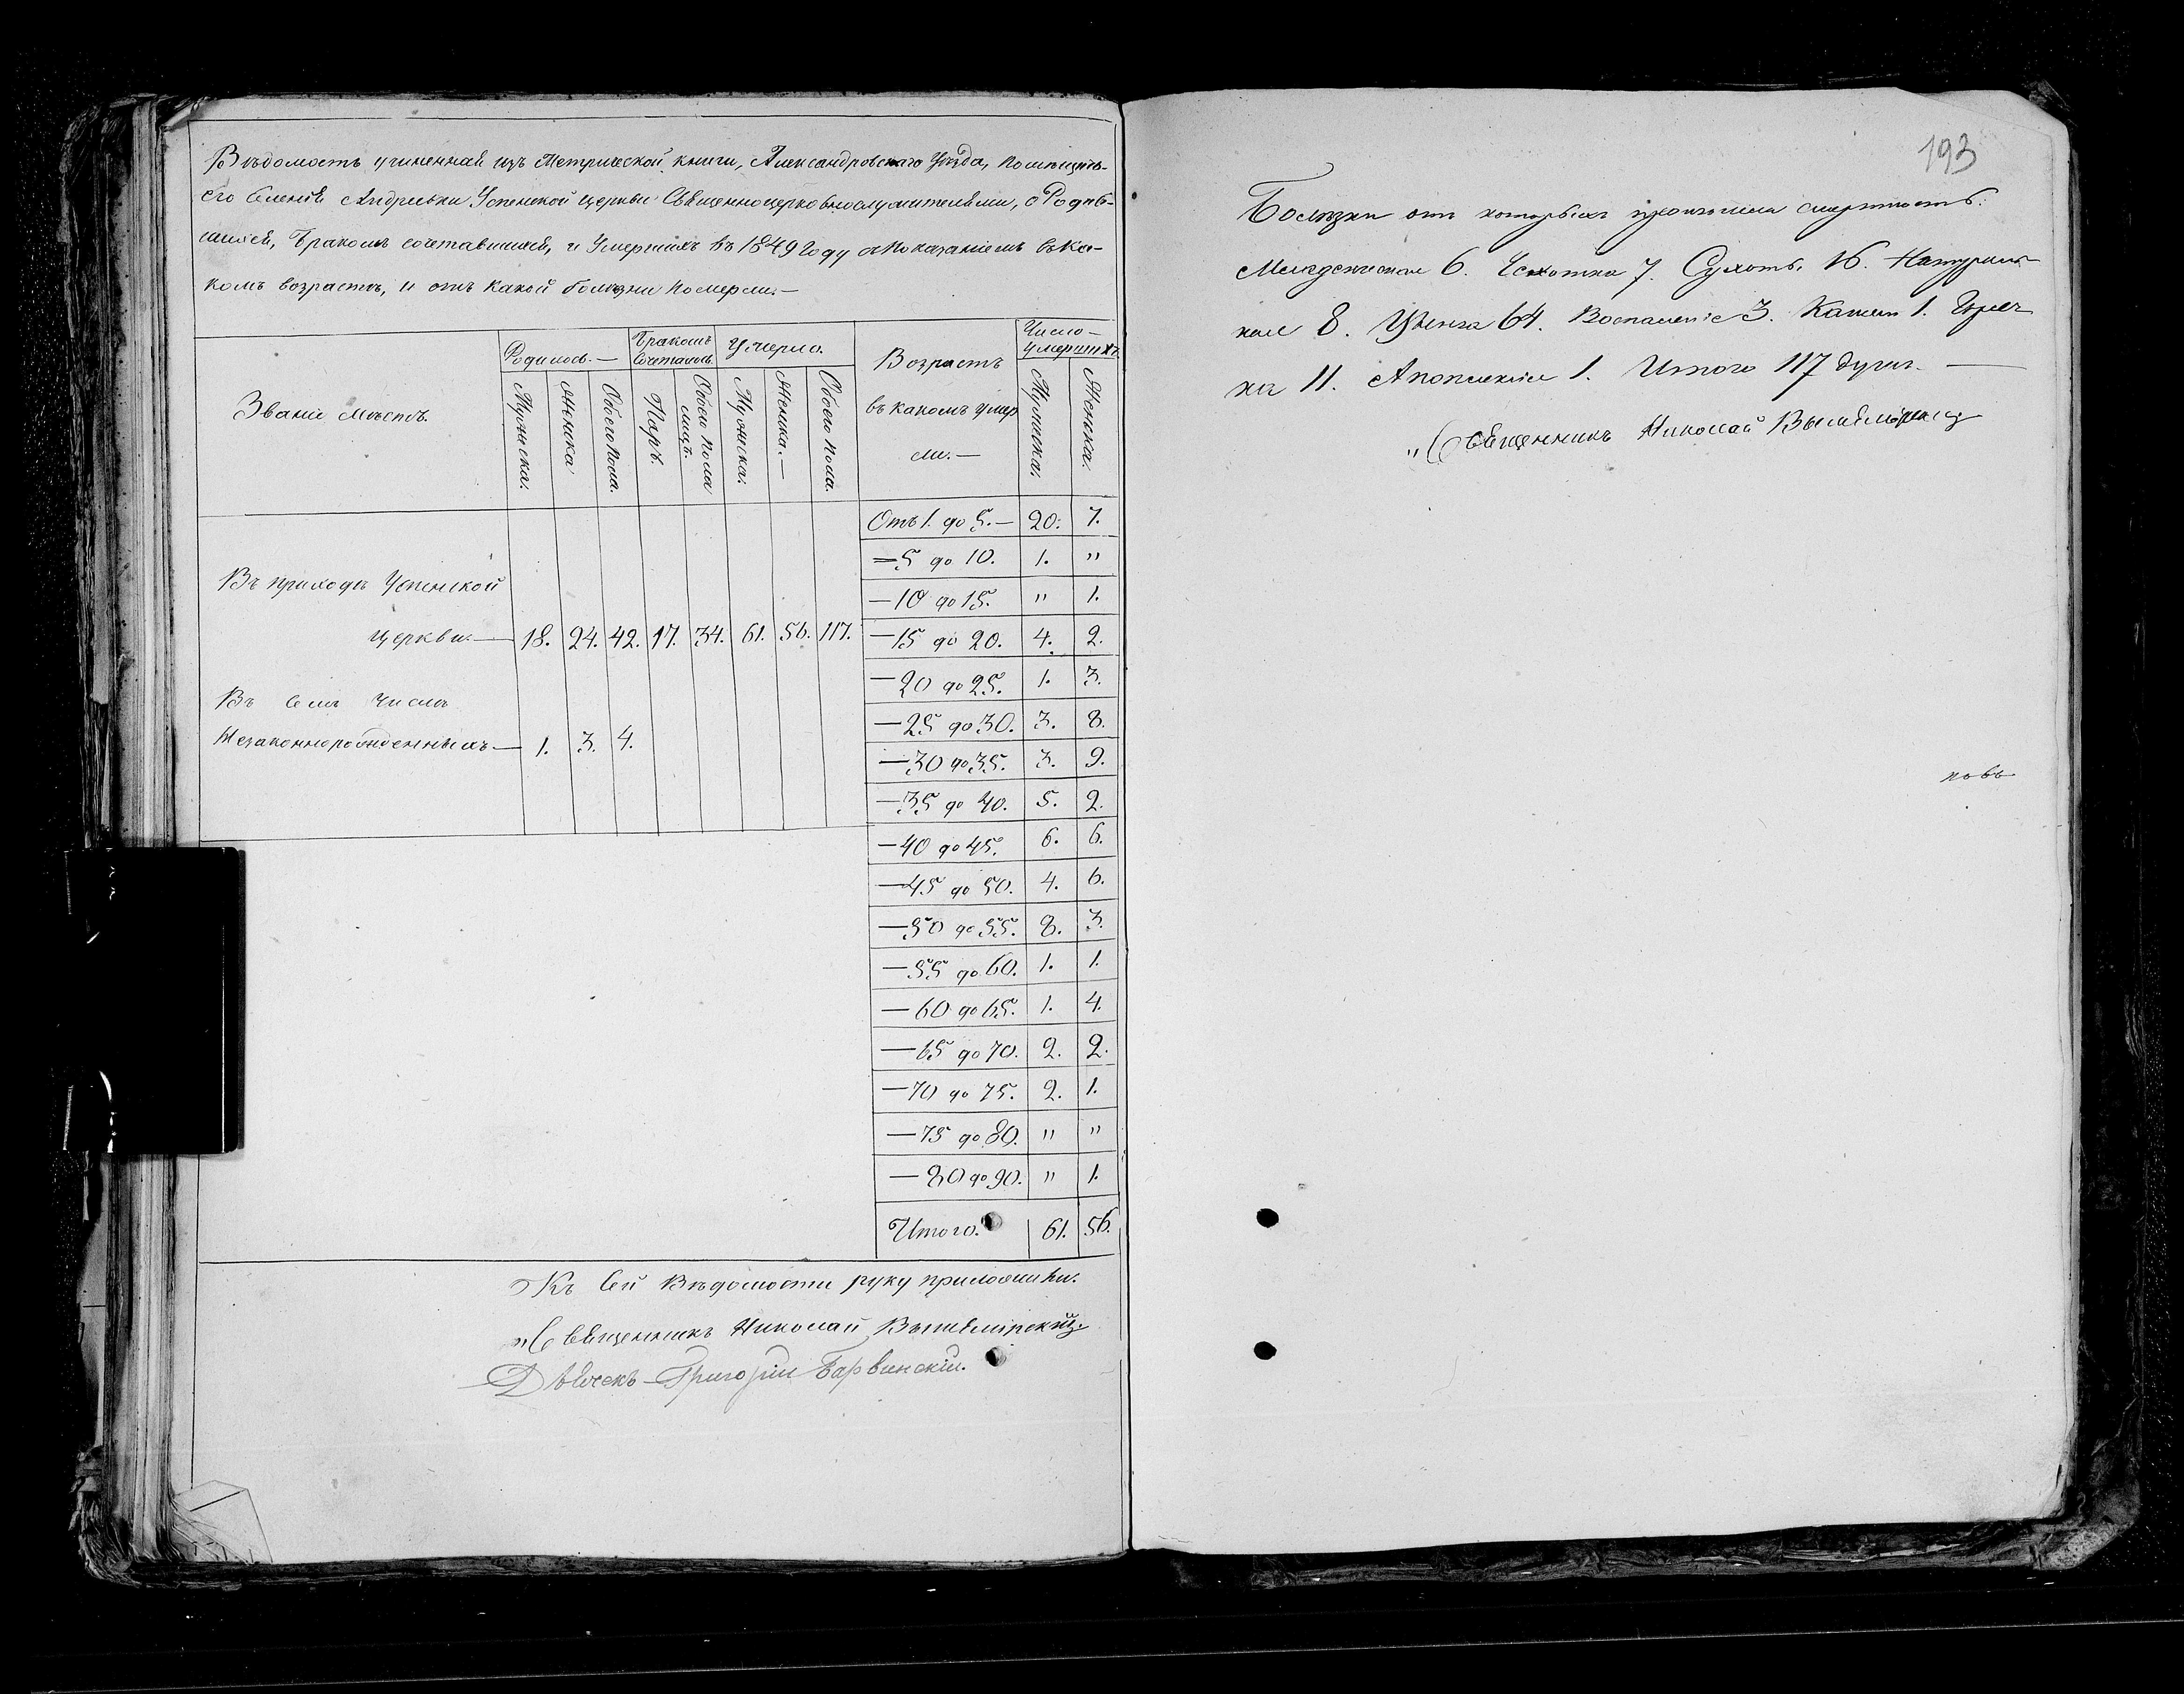 Вѣдомость учиненная изъ Метрической книги, Александровскаго Уѣзда, помѣщичь-
его Селенія Андреевки Успенской Церкви Священноцерковнослужителями, о Родив-
шихся, Бракомъ сочетавшихся, и Умершихъ въ 1849 году съ показаніемъ въ ка-
комъ возрастѣ, и отъ какой болѣзни померли.—
Званіе мѣстъ.
Родилось.—
Бракомъ Сочеталось.
Умерло.
Возрастъ въ какомъ умер ли.—
Число умершихъ.
Мужска. Женска Обоего пола. Паръ. Обоего пола лицъ. Мужска. Женска.— Обоего пола. Мужска. Женска.
Въ приходѣ Успенской
Церкви.— 18. 24. 42. 17. 34. 61. 56. 117.
Въ семъ числѣ
Незаконнорожденныхъ— 1. 3. 4.
Отъ 1. до 5.— 20. 7.
— 5 до 10. 1. "
— 10 до 15. " 1.
— 15 до 20. 4. 2.
— 20 до 25. 1. 3.
— 25 до 30. 3. 8.
— 30 до 35. 3. 9.
— 35 до 40. 5. 2.
— 40 до 45. 6. 6.
— 45 до 50. 4. 6.
— 50 до 55. 8. 3.
— 55 до 60. 1. 1.
— 60 до 65. 1. 4.
— 65 до 70. 2. 2.
— 70 до 75. 2. 1.
— 75 до 80. " "
— 80 до 90. " 1.
Итого. 61. 56.
Къ Сей Вѣдомости руку приложили.
"Священникъ Николай
Дьячекъ Григорій Барвинскій.
193
Болѣзни отъ которыхъ приключилась смертность:
Младенческая 6. Чехотка 7. Сухоть. 16. Натураль-
ная 8. Цынга 64. Воспаленіе 3. Камень 1. Горяч-
ка 11. Апоплексія 1. Итого 117 душъ.—
"Священникъ Николай
новъ